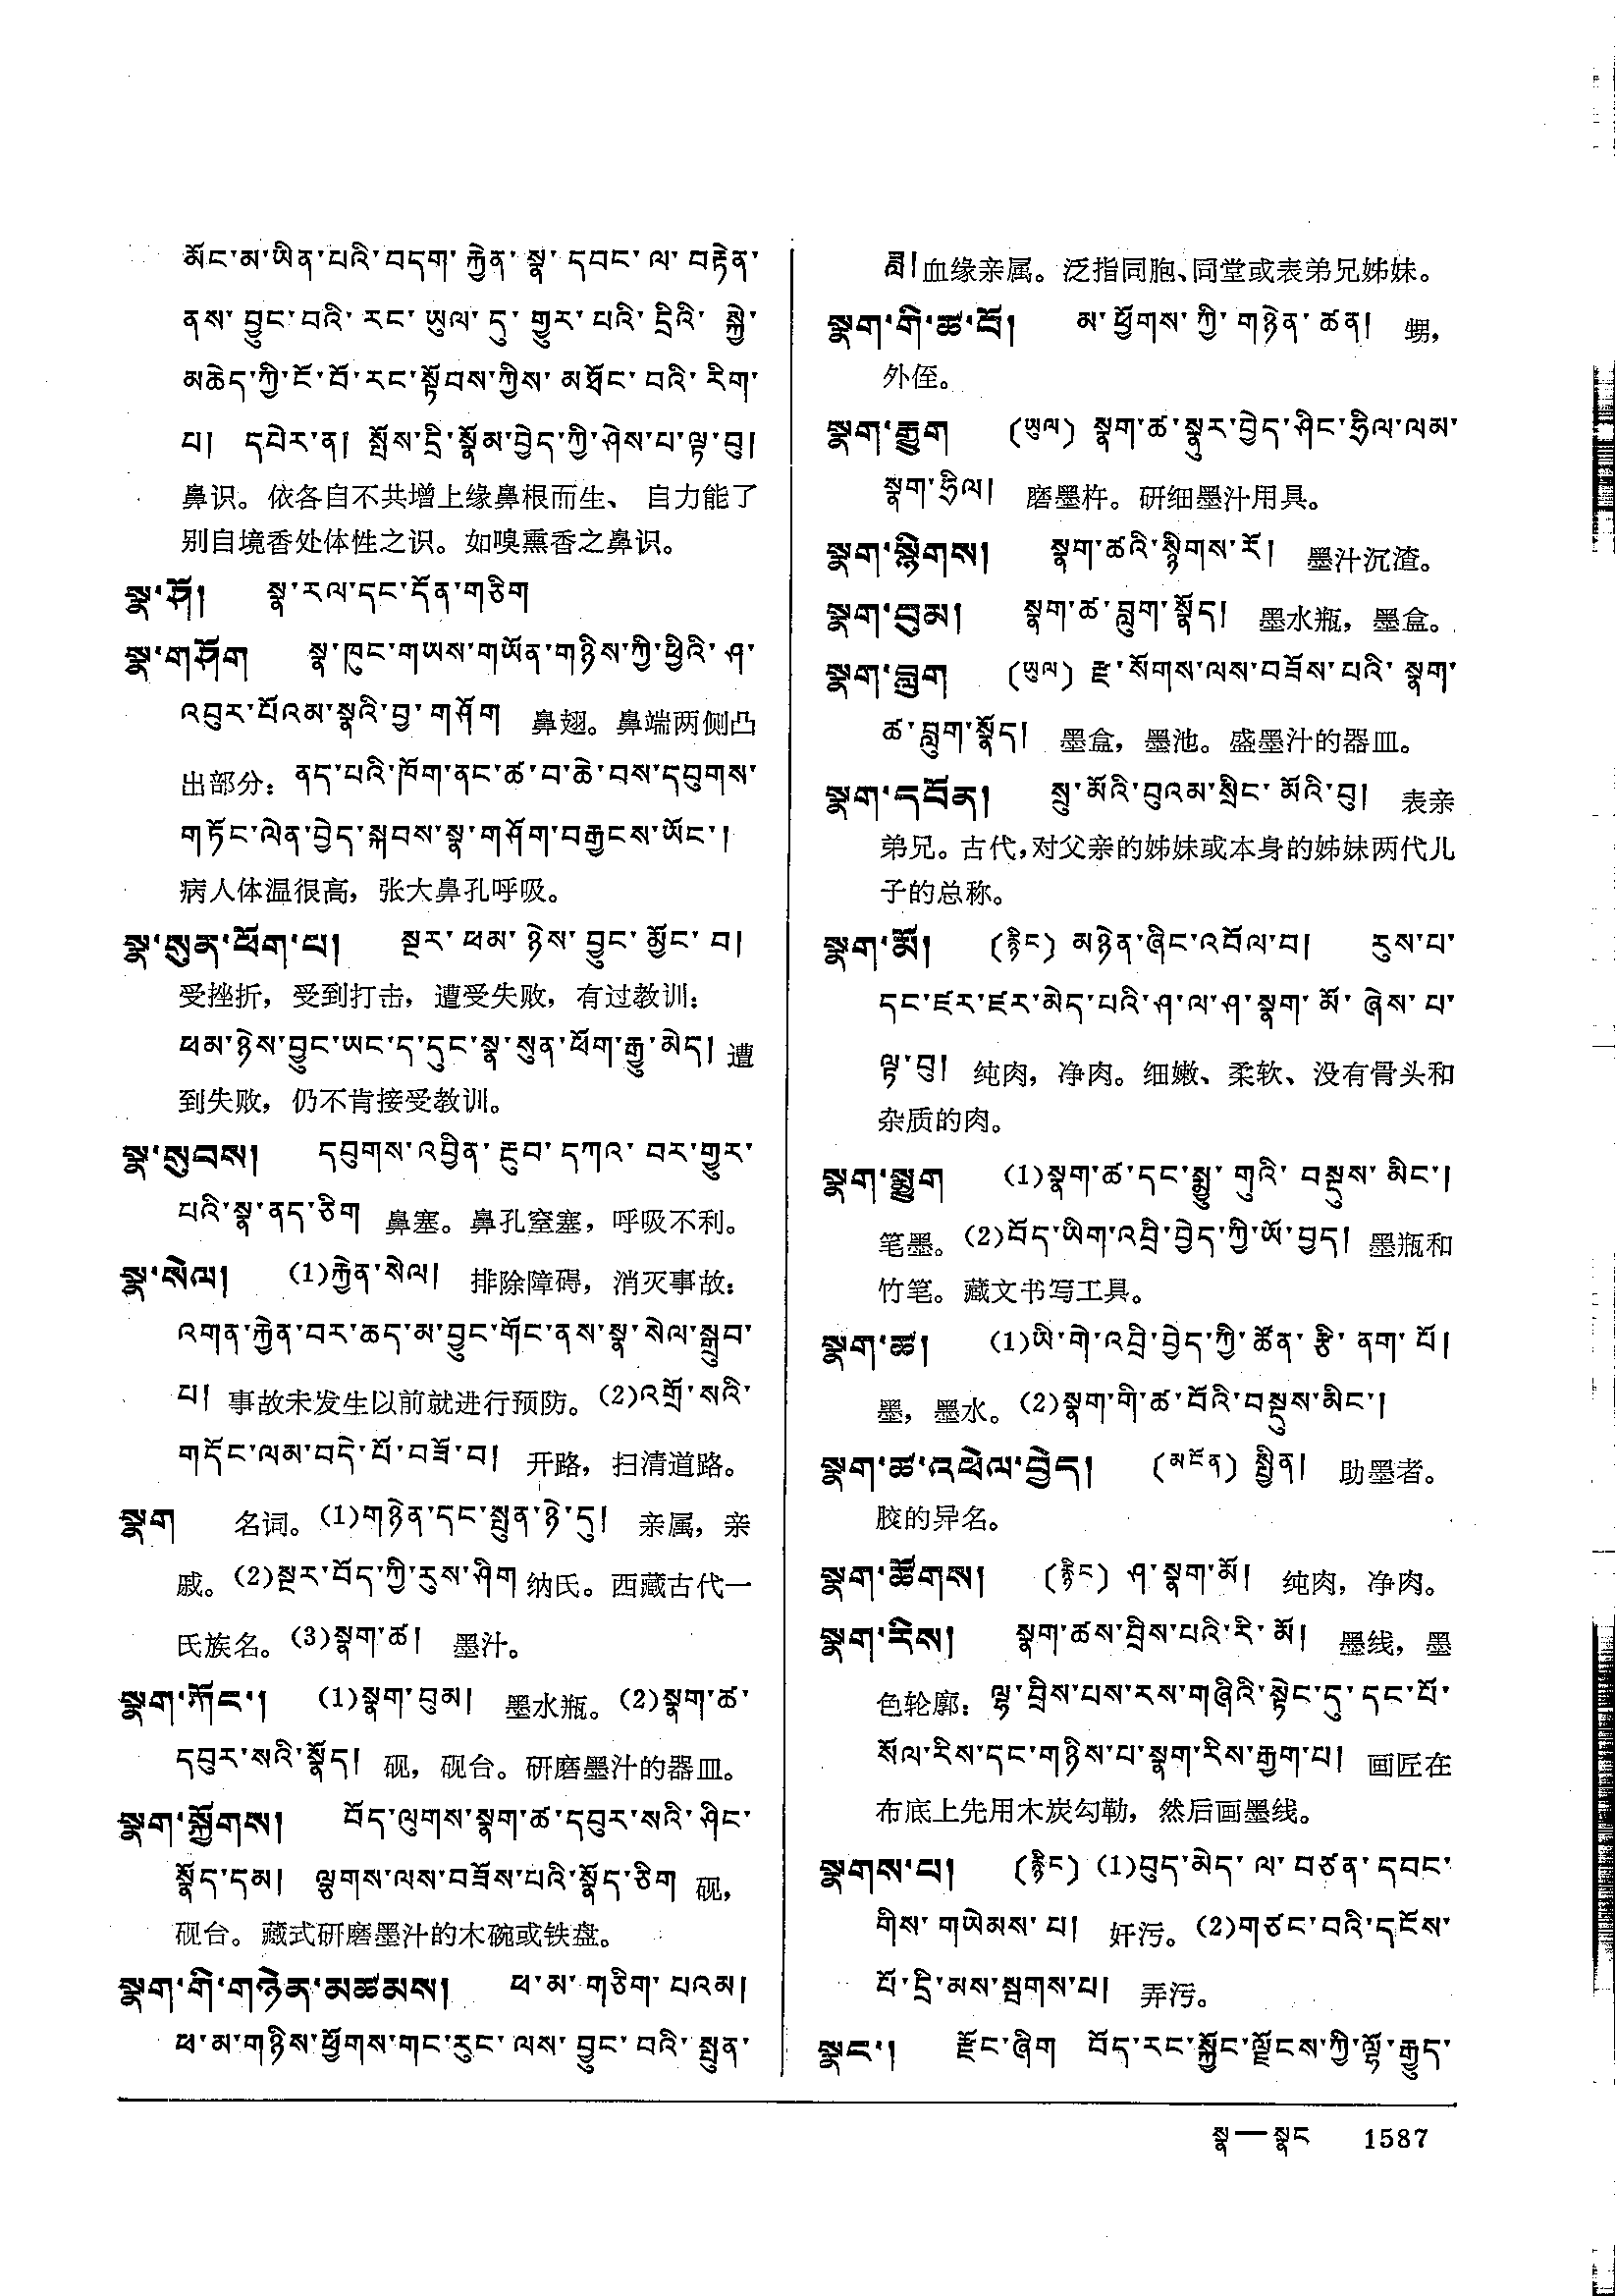 མོང་མ་ཡིན་པའི་བདག་རྐྱེན་སྣ་དབང་ལ་བརྟེན་
ནས་བྱུང་བའི་རང་ཡུལ་དུ་གྱུར་པའི་དྲིའི་སྐྱེ་
མཆེད་ཀྱི་ངོ་བོ་རང་སྟོབས་ཀྱིས་མཐོང་བའི་རིག་
པ། དཔེར་ན། སྤོས་དྲི་སྣོམ་བྱེད་ཀྱི་ཤེས་པ་ལྟ་བུ།
鼻识。依各自不共增上缘鼻根而生、自力能了
别自境香处体性之识。如嗅熏香之鼻识。
སྣ་ཤོ། སྣ་རལ་དང་དོན་གཅིག
སྣ་གཤོག སྣ་ཁུང་གཡས་གཡོན་གཉིས་ཀྱི་ཕྱིའི་ཤ་
འབུར་པོའམ་སྣའི་བྱ་གཤོག 鼻翅。鼻端两侧凸
出部分：ནད་པའི་ཁོག་ནང་ཚ་བ་ཆེ་བས་དབུགས་
གཏོང་ལེན་བྱེད་སྐབས་སྣ་གཤོག་བརྒྱངས་ཡོང་།
病人体温很高，张大鼻孔呼吸。
སྣ་སུན་ཕོག་པ། སྔར་ཕམ་ཉེས་བྱུང་མྱོང་བ།
受挫折，受到打击，遭受失败，有过教训：
ཕམ་ཉེས་བྱུང་ཡང་ད་དུང་སྣ་སུན་ཕོག་རྒྱུ་མེད། 遭
到失败，仍不肯接受教训。
སྣ་སུབས། དབུགས་འབྱིན་རྔུབ་དཀའ་བར་གྱུར་
པའི་སྣ་ནད་ཅིག 鼻塞。鼻孔窒塞，呼吸不利。
སྣ་སེལ། (1)རྐྱེན་སེལ། 排除障碍，消灭事故：
འགན་རྐྱེན་བར་ཆད་མ་བྱུང་གོང་ནས་སྣ་སེལ་སྒྲུབ་
པ། 事故未发生以前就进行预防。(2)འགྲོ་སའི་
གདོང་ལམ་བདེ་པོ་བཟོ་བ། 开路，扫清道路。
སྣག 名词。(1)གཉེན་དང་སྤུན་ཉེ་དུ། 亲属，亲
戚。(2)སྔར་བོད་ཀྱི་རུས་ཤིག 纳氏。西藏古代一
氏族名。(3)སྣག་ཚ། 墨汁。
སྣག་ཀོང་། (1)སྣག་བུམ། 墨水瓶。(2)སྣག་ཚ་
དབུར་སའི་སྣོད། 砚，砚台。研磨墨汁的器皿。
སྣག་སྐྱོགས། བོད་ལུགས་སྣག་ཚ་དབུར་སའི་ཤིང་
སྣོད་དམ། ལྕགས་ལས་བཟོས་པའི་སྣོད་ཅིག 砚，
砚台。藏式研磨墨汁的木碗或铁盘。
སྣག་གི་གཉེན་མཚམས། ཕ་མ་གཅིག་པའམ།
ཕ་མ་གཉིས་ཕྱོགས་གང་རུང་ལས་བྱུང་བའི་སྤུན་
ཟླ།血缘亲属。泛指同胞、同堂或表弟兄姊妹。
སྣག་གི་ཚ་བོ། མ་ཕྱོགས་ཀྱི་གཉེན་ཚན། 甥，
外侄。
སྣག་རྒྱུག (ཡུལ) སྣག་ཚ་སྣུར་བྱེད་ཤིང་ཧྲིལ་ལམ་
སྣག་ཧྲིལ། 磨墨杵。研细墨汁用具。
སྣག་སྙིགས། སྣག་ཚའི་སྙིགས་རོ། 墨汁沉渣。
སྣག་བུམ། སྣག་ཚ་བླུག་སྣོད། 墨水瓶，墨盒。
སྣག་བླུག (ཡུལ) རྫ་སོགས་ལས་བཟོས་པའི་སྣག་
ཚ་བླུག་སྣོད། 墨盒，墨池。盛墨汁的器皿。
སྣག་དབོན། སྲུ་མོའི་བུའམ་སྲིང་མོའི་བུ། 表亲
弟兄。古代，对父亲的姊妹或本身的姊妹两代儿
子的总称。
སྣག་མོ། (རྙིང) མཉེན་ཞིང་འབོལ་བ། རུས་པ་
དང་ཛར་ཛར་མེད་པའི་ཤ་ལ་ཤ་སྣག་མོ་ཞེས་པ་
ལྟ་བུ། 纯肉，净肉。细嫩、柔软、没有骨头和
杂质的肉。
སྣག་སྨྱུག (1)སྣག་ཚ་དང་སྨྱུ་གུའི་བསྡུས་མིང་།
笔墨。(2)བོད་ཡིག་འབྲི་བྱེད་ཀྱི་ཡོ་བྱད། 墨瓶和
竹笔。藏文书写工具。
སྣག་ཚ། (1)ཡི་གེ་འབྲི་བྱེད་ཀྱི་ཚོན་རྩི་ནག་པོ།
墨，墨水。(2)སྣག་གི་ཚ་བོའི་བསྡུས་མིང་།
སྣག་ཚ་འཕེལ་བྱེད། (མངོན) སྤྱིན། 助墨者。
胶的异名。
སྣག་ཚོགས། (རྙིང) ཤ་སྣག་མོ། 纯肉，净肉。
སྣག་རིས། སྣག་ཚས་བྲིས་པའི་རི་མོ། 墨线，墨
色轮廓：ལྷ་བྲིས་པས་རས་གཞིའི་སྟེང་དུ་དང་པོ་
སོལ་རིས་དང་གཉིས་པ་སྣག་རིས་རྒྱག་པ། 画匠在
布底上先用木炭勾勒，然后画墨线。
སྣགས་པ། (རྙིང) (1)བུད་མེད་ལ་བཙན་དབང་
གིས་གཡེམས་པ། 奸污。(2)གཙང་བའི་དངོས་
པོ་དྲི་མས་སྦགས་པ། 弄污。
སྣང་། རྫོང་ཞིག བོད་རང་སྐྱོང་ལྗོངས་ཀྱི་ལྷོ་རྒྱུད་
སྣ—སྣང 1587